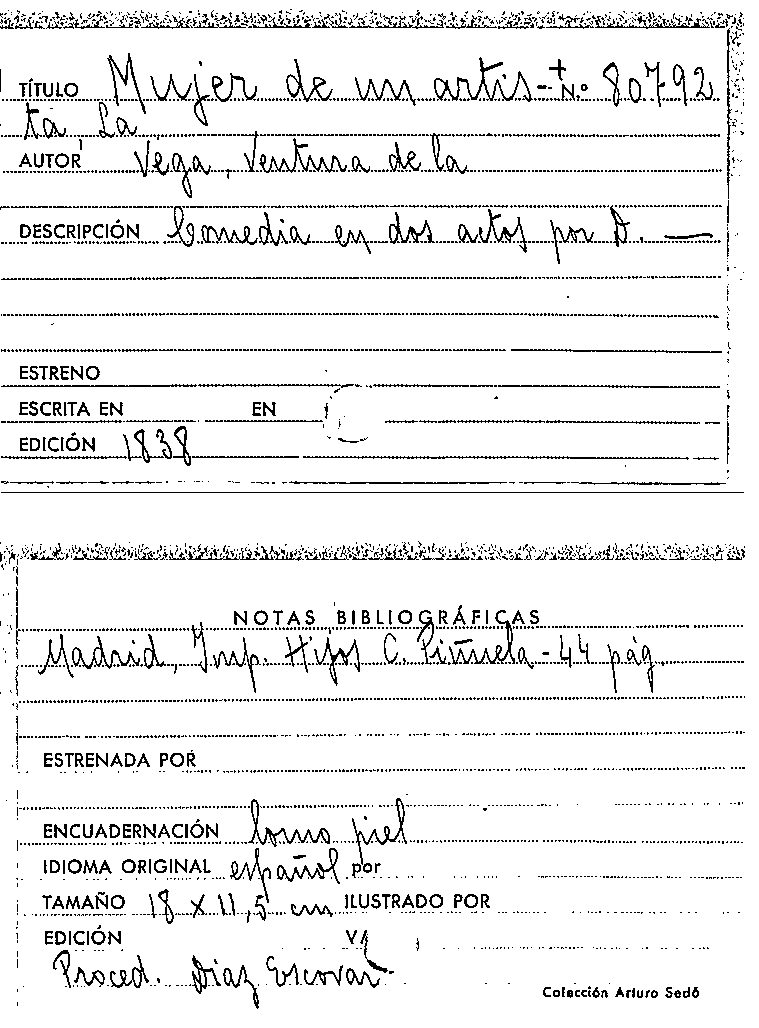 TÍTULO Mujer de un artis- N.º 80792
ta, La
AUTOR Vega, Ventura de la
DESCRIPCIÓN Comedia en dos actos por D. —
ESTRENO
ESCRITA EN EN
EDICIÓN 1838
NOTAS BIBLIOGRÁFICAS
Madrid, Imp. Hijos C. Piñuela - 44 pág.
ESTRENADA POR
ENCUADERNACIÓN lomo piel
IDIOMA ORIGINAL español por
TAMAÑO 18 x 11,5 cm ILUSTRADO POR
EDICIÓN
Proced. Diaz Escovar
Colección Arturo Sedó